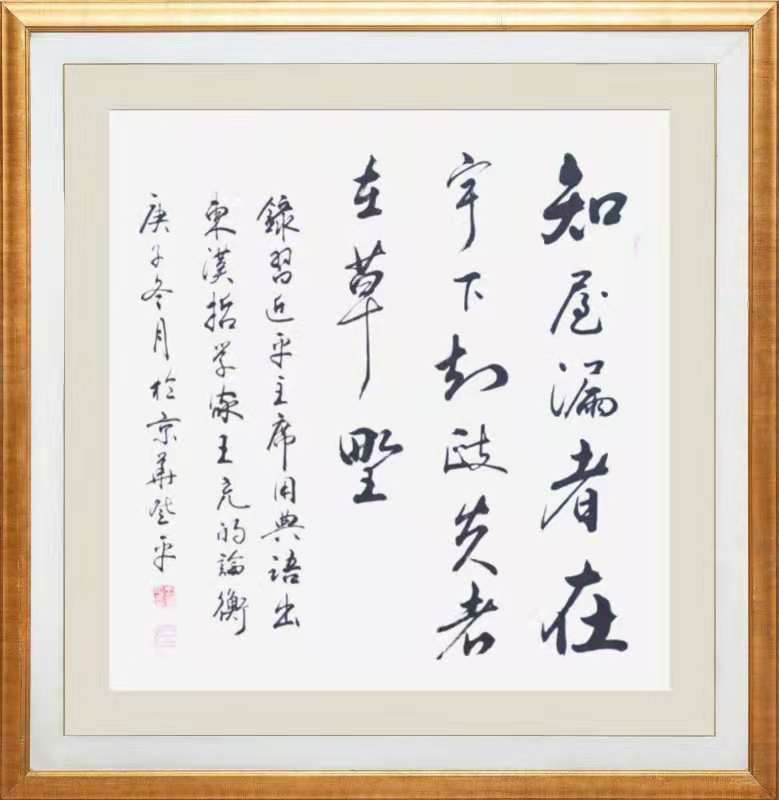 知屋漏者在
宇下知政失者
在草野
錄習近平主席用典語出
東漢哲学家王充的論衡
庚子冬月於京華平